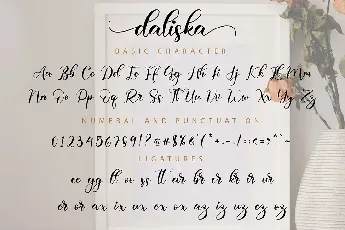 daliska
BASIC CHARACTER
Aa Bb Cc Dd Ee Ff Gg Hh Ii Jj Kk Ll Mm
Nn Oo Pp Qq Rr Ss Tt Uu Vv Ww Xx Yy Zz
NUMERAL AND PUNCTUATION
0123456789!?
LIGATURES
ee gg tt oo ss ll air br er kr ir ur
er or ax ix ux ex ox az iz uz ez oz